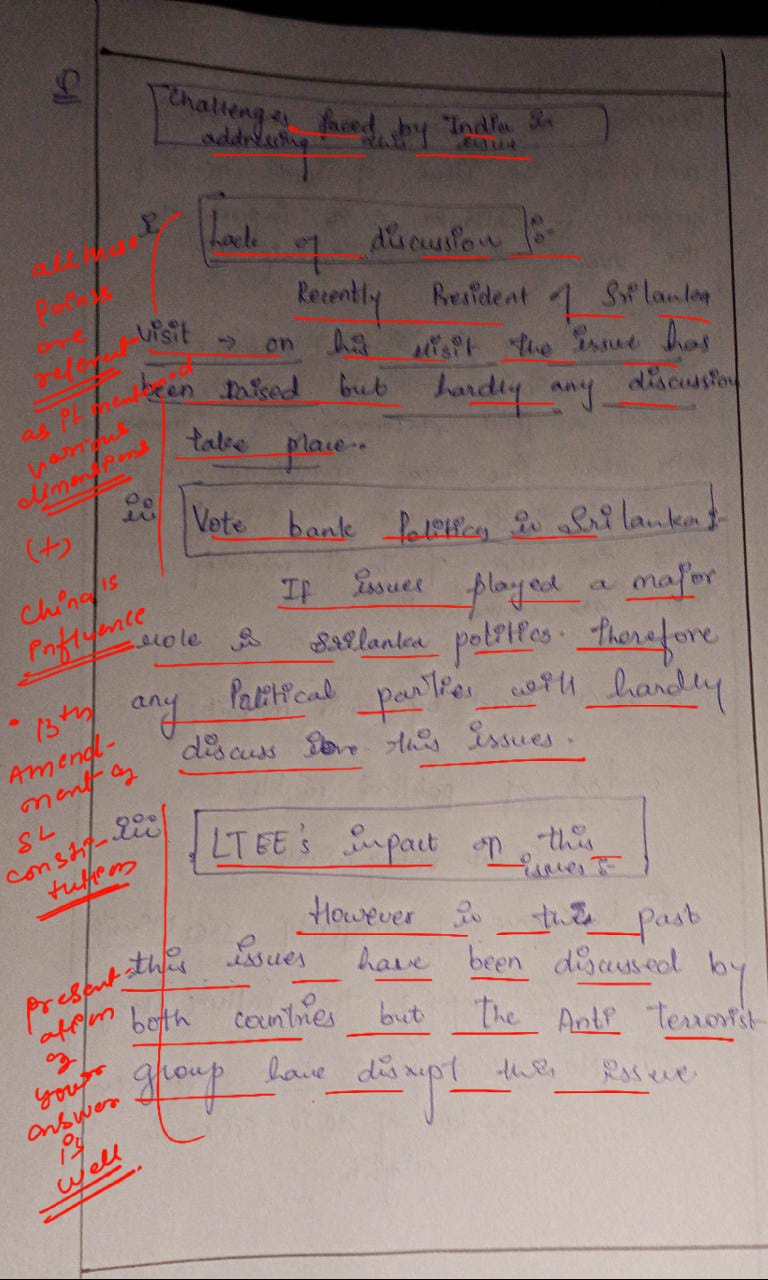 Challenges faced by India in
addressing this issue
i. Lack of discussion :-
Recently President of Srilanka
visit → on his visit the issue has
been raised but hardly any discussion
take place..
ii Vote bank Politics in Srilanka :-
If issues played a major
role is Srilanka politics. therefore
any Political parties will hardly
discuss this issues.
iii LTEE's inpact on this
issues :-
However in the past
this issues have been discussed by
both countries but the Anti terrorist
group have disrupt this issue
all these
points
are
relevant
as it mentioned
various
dimensions
(+)
China's
influence
• 13th
Amend-
ment of
SL
consti-
tution
present-
ation
of
your
answer
is
well.